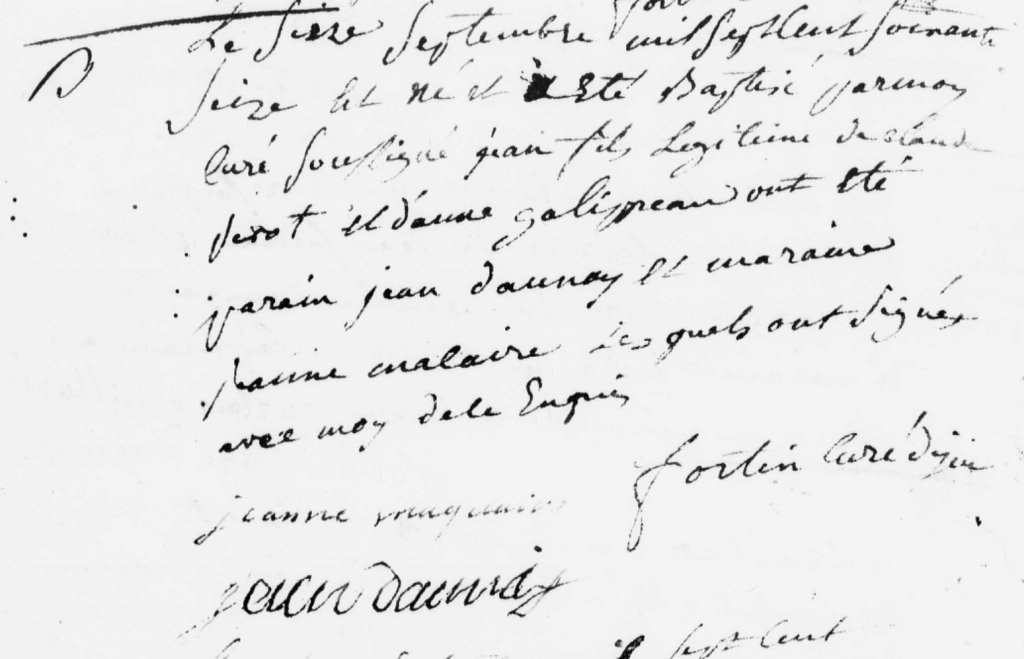 B
Le seize septembre mil sept cent soixante
seize est né et a été Baptisé par moy
curé soussigné jean fils Legitime de claude
pirot et d'anne galippeau ont eté
parain jean daunay et maraine
jeanne malaire Les quels ont signés
avec moy de ce Enquis
fortin curé d'
jeanne
jean daunay
sept cent